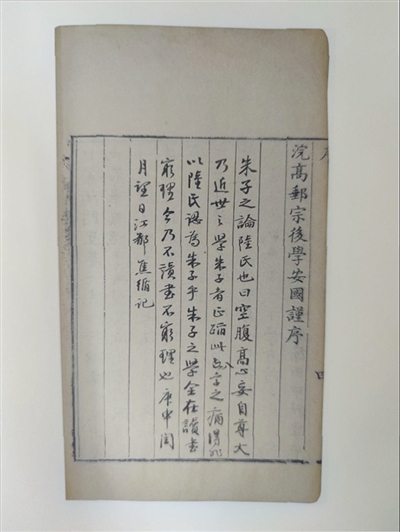 浣高郵宗後學安國謹序
朱子之論陸氏也曰空腹高心妄自尊大
乃近世之學朱子者正蹈此字之病得非
以陸氏認為朱子乎朱子之學全在讀書
窮理今乃不讀書不窮理也庚申閏
月望日江都焦循記
四